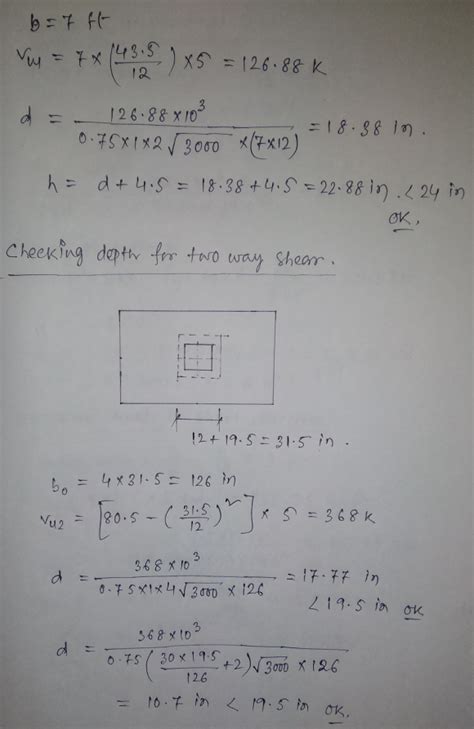 b = 7 ft
Vu1 = 7 × (43.5/12) × 5 = 126.88 K
d = 126.88 × 10³ / 0.75×1×2√3000 × (7×12) = 18.38 in.
h = d + 4.5 = 18.38 + 4.5 = 22.88 in. < 24 in
OK.
Checking depth for two way shear.
12 + 19.5 = 31.5 in.
b₀ = 4 × 31.5 = 126 in
Vu2 = [80.5 − (31.5/12)²] × 5 = 368 K
d = 368 × 10³ / 0.75×1×4√3000 × 126 = 17.77 in
< 19.5 in OK
d = 368×10³ / 0.75(30×19.5/126 + 2)√3000 × 126
= 10.7 in < 19.5 in OK.